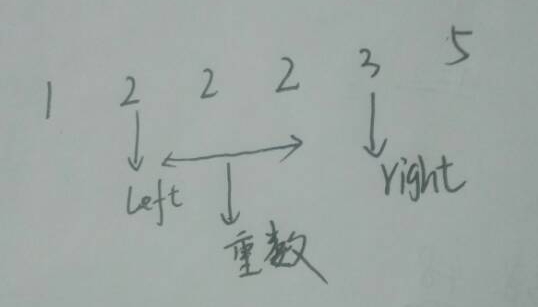 1 2 2 2 3 5
left right
重数